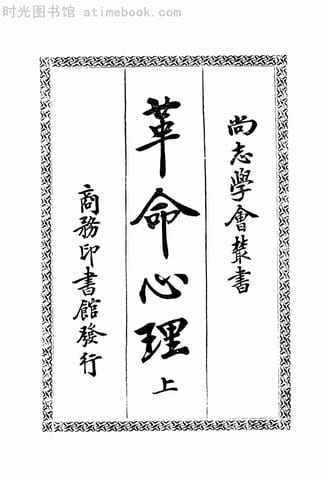 时光图书馆 atimebook.com
尚志學會叢書
革命心理 上
商務印書館發行